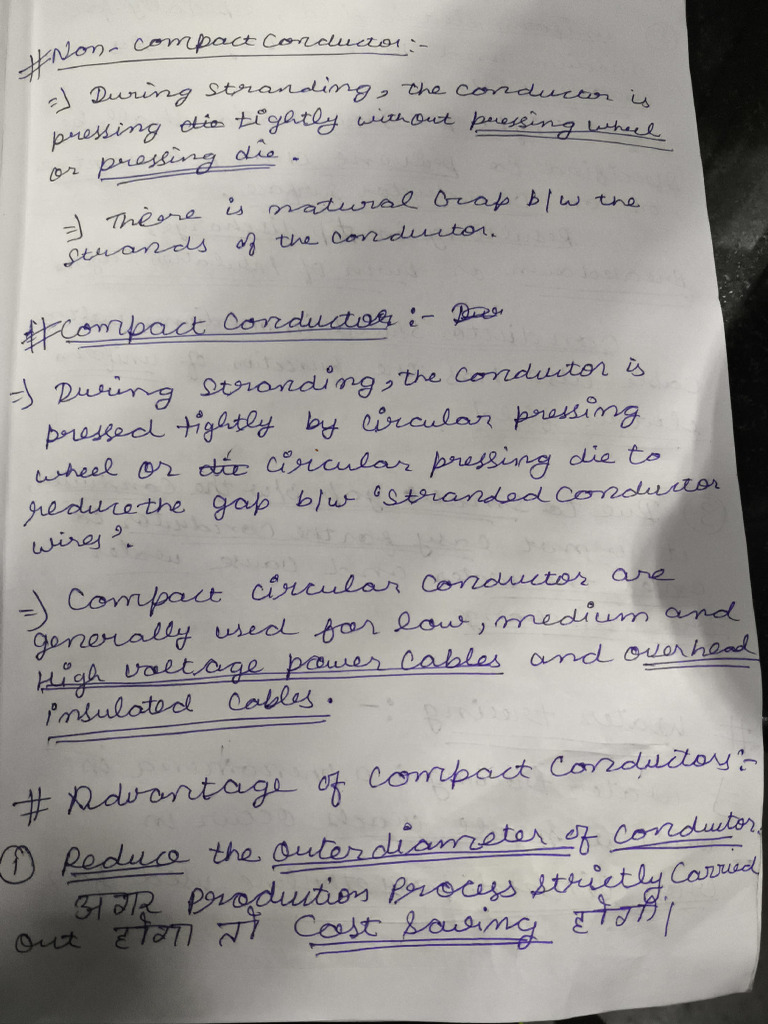 # Non-compact Conductor:-
=) During Stranding, the conductor is
pressing die tightly without pressing wheel
or pressing die.
=) There is natural Gap b/w the
strands of the conductor.
# Compact Conductor :-
=) During Stranding, the conductor is
pressed tightly by Circular pressing
wheel or die Circular pressing die to
reduce the gap b/w "Stranded Conductor
wires".
=) Compact circular conductor are
generally used for low, medium and
High voltage power Cables and overhead
insulated Cables.
# Advantage of Compact Conductors:-
① Reduce the outer diameter of conductor.
अगर Production Process Strictly Carried
out होगा तो Cost Saving होगी।